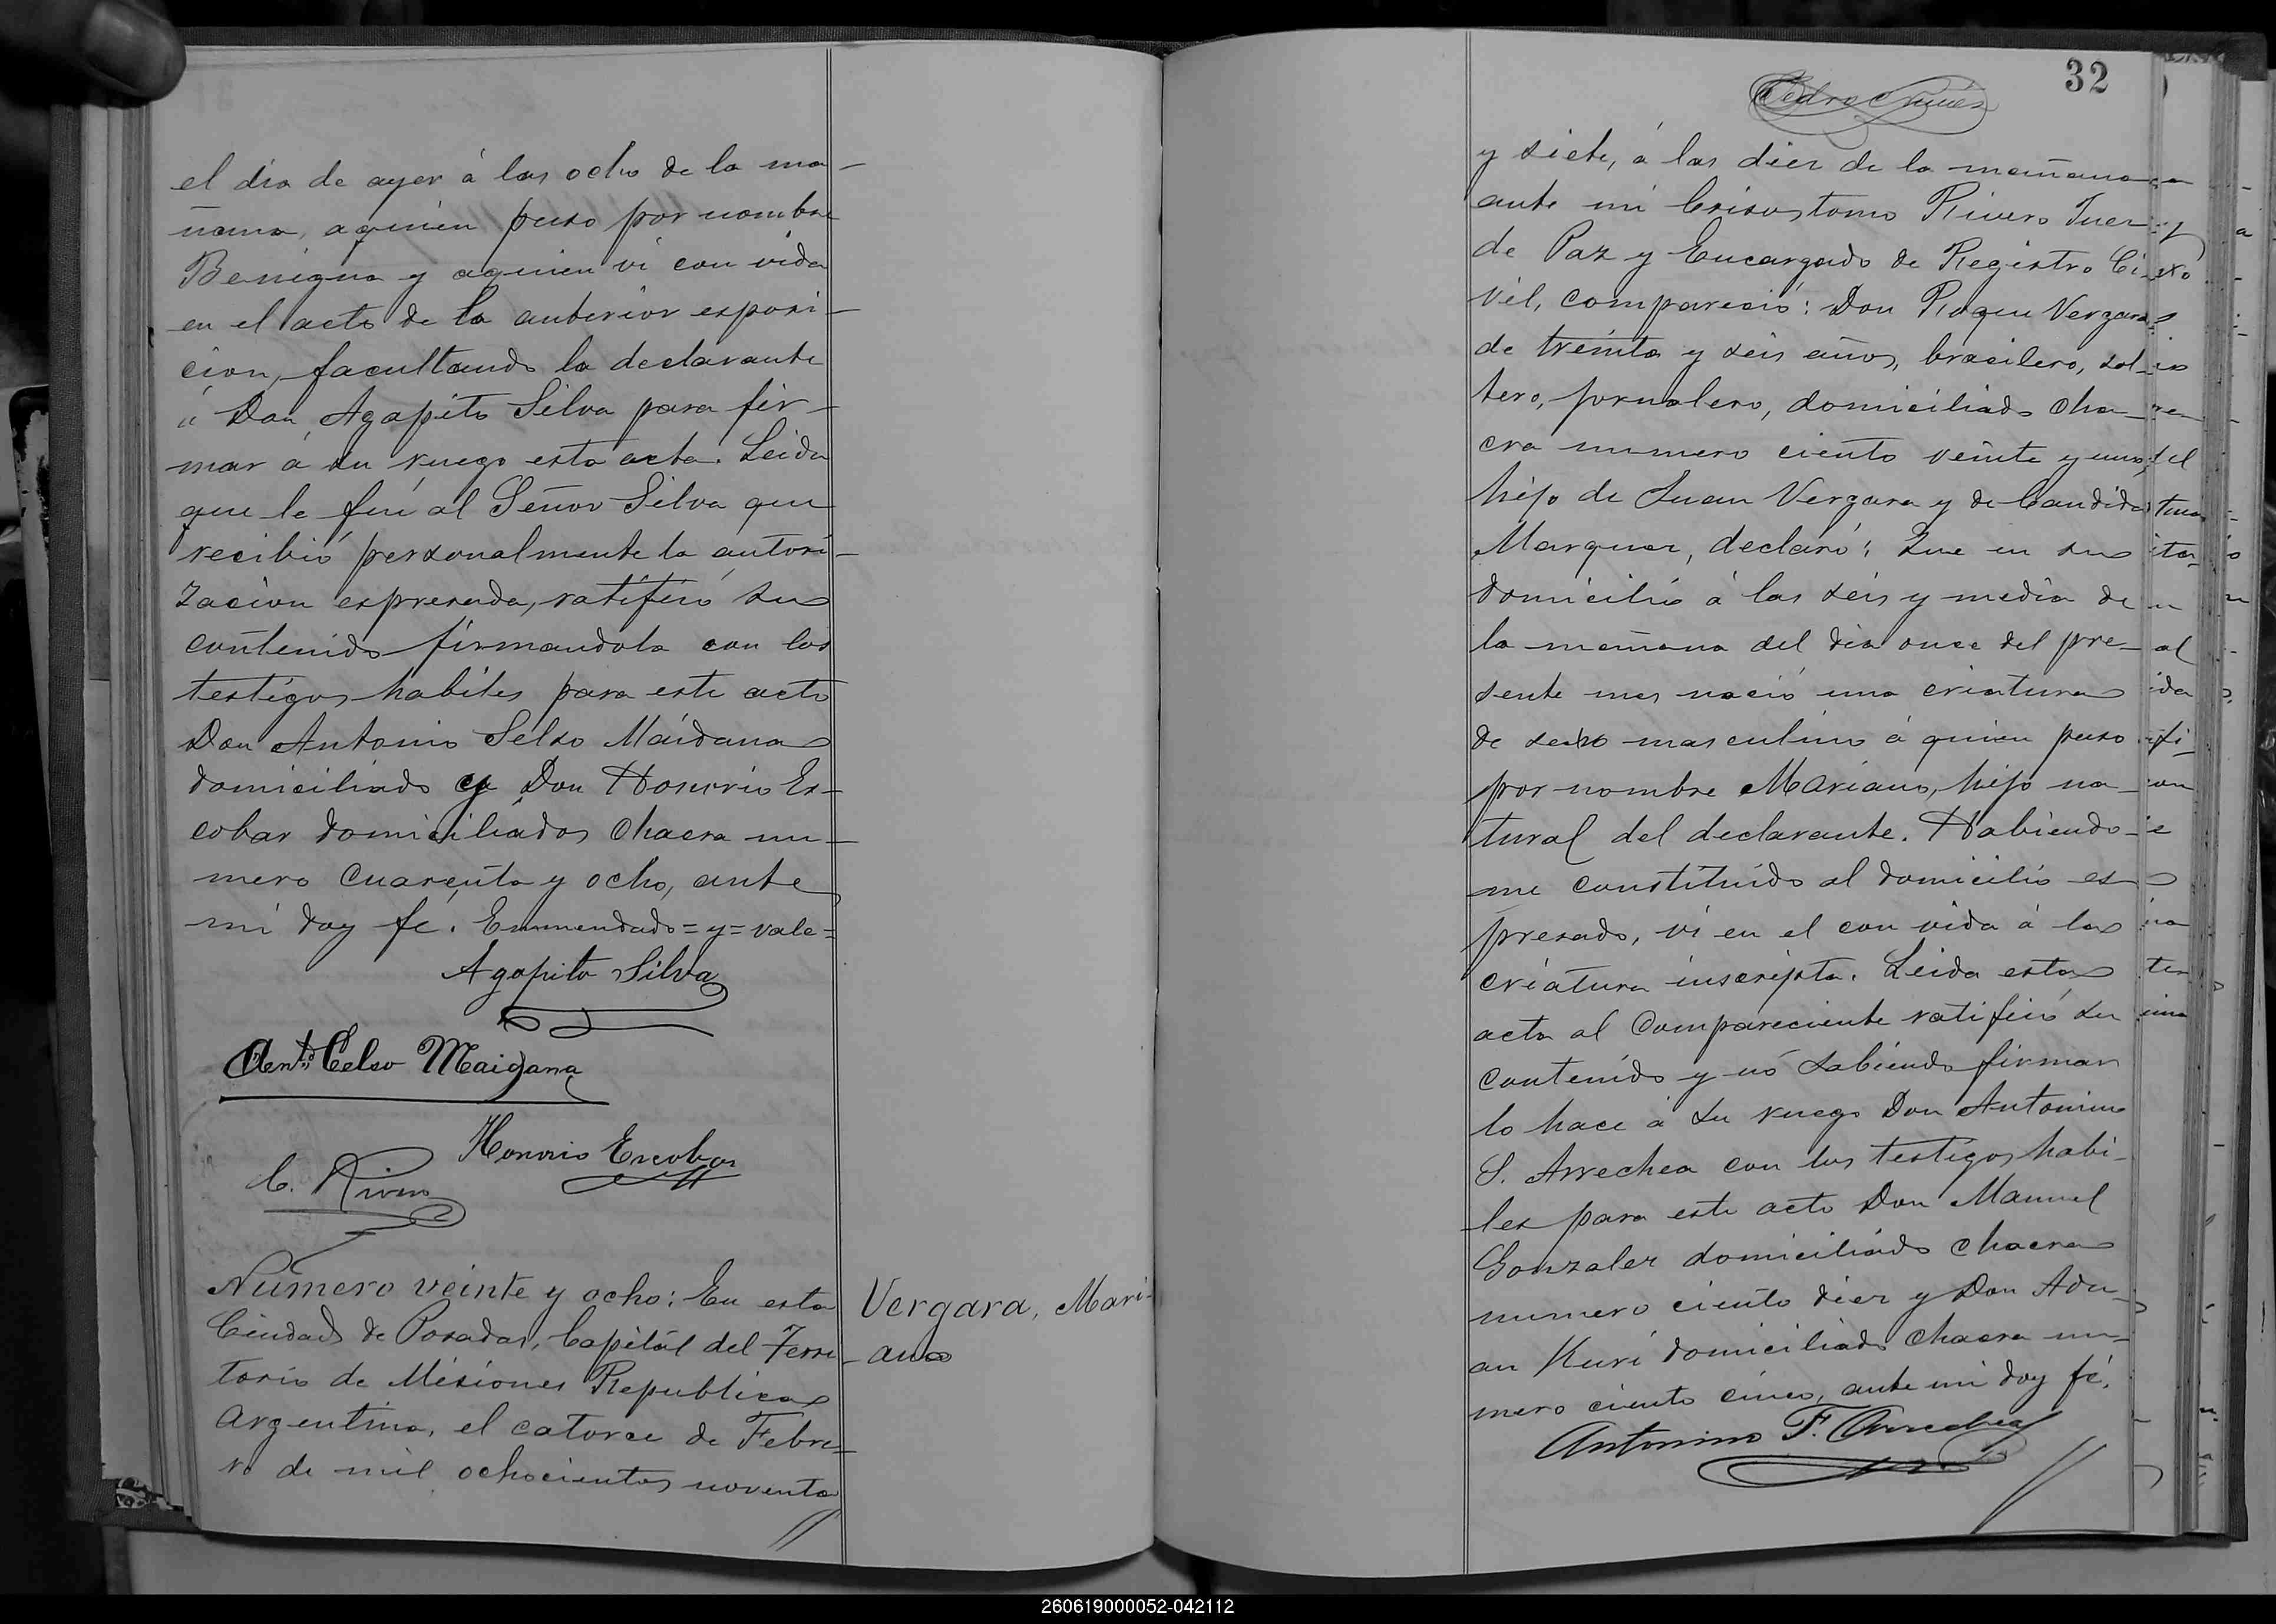 el dia de ayer á las ocho de la ma-
ñana, aquien puso por nombre
Benigna y aquien vi con vida
en el acto de la anterior esposi-
cion, facultando la declarante
á Don Agapito Silva para fir-
mar á su ruego esta acta. Leida
que le fué al Señor Silva que
recibió personalmente la autori-
zacion espresada, ratificó su
contenido firmandola con los
testigos habiles para este acto
Don Antonio Selso Maidana
domiciliado y Don Honorio Es-
cobar domiciliados Chacra nu-
mero Cuarenta y ocho, ante
mi doy fé. Enmendado=y=vale=
Agapito Silva
Ant.º Celso Maidana
Honorio Escobar
C. Rivero
Número veinte y ocho: En esta
Ciudad de Posadas, Capital del Terri-
torio de Misiones Republica
Argentina, el catorce de Febre-
ro de mil ochocientos noventa
Vergara, Mari-
ano
32
Pedro Nuñez
y siete, á las diez de la mañana
ante mi Crisostomo Rivero Juez
de Paz y Encargado de Registro Ci-
vil, compareció: Don Roque Vergara
de treinta y seis años, brasilero, sol-
tero, jornalero, domiciliado Cha-
cra numero ciento veinte y uno,
hijo de Juan Vergara y de Candida
Marquez, declaró: Que en su
domicilio á las seis y media de
la mañana del dia once del pre-
sente mes nació una criatura
de sexo masculino á quien puso
por nombre Mariano, hijo na-
tural del declarante. Habiendo-
me constituido al domicilio es-
presado, vi en el con vida á la
criatura inscripta. Leida esta
acta al Compareciente ratificó su
contenido y nó sabiendo firmar
lo hace á su ruego Don Antonino
S. Arrechea con los testigos habi-
les para este acto Don Manuel
Gonzalez domiciliado chacra
numero ciento diez y Don Adu-
an Kuri domiciliado Chacra nu-
mero ciento cinco, ante mi doy fé.
Antonino F. Arrechea
260619000052-042112